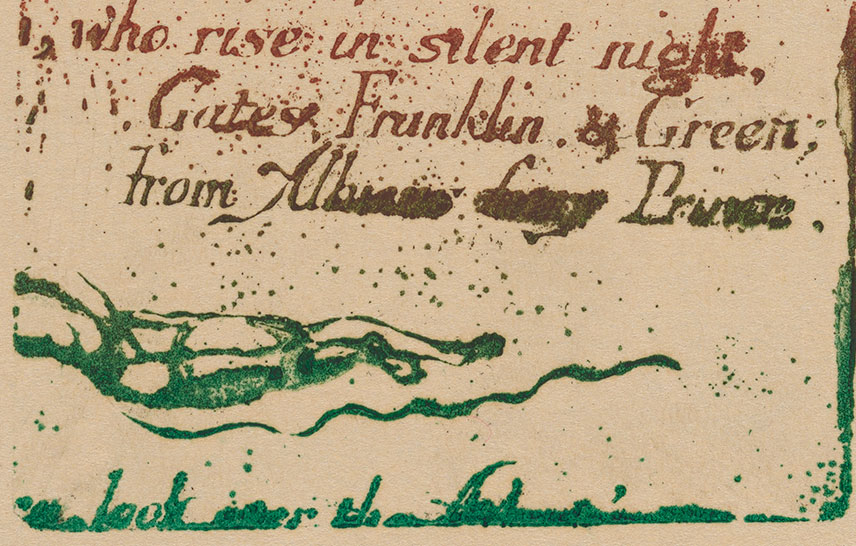 , who rise in silent night,
Gates, Franklin & Green;
from Albions Prince.
look over the